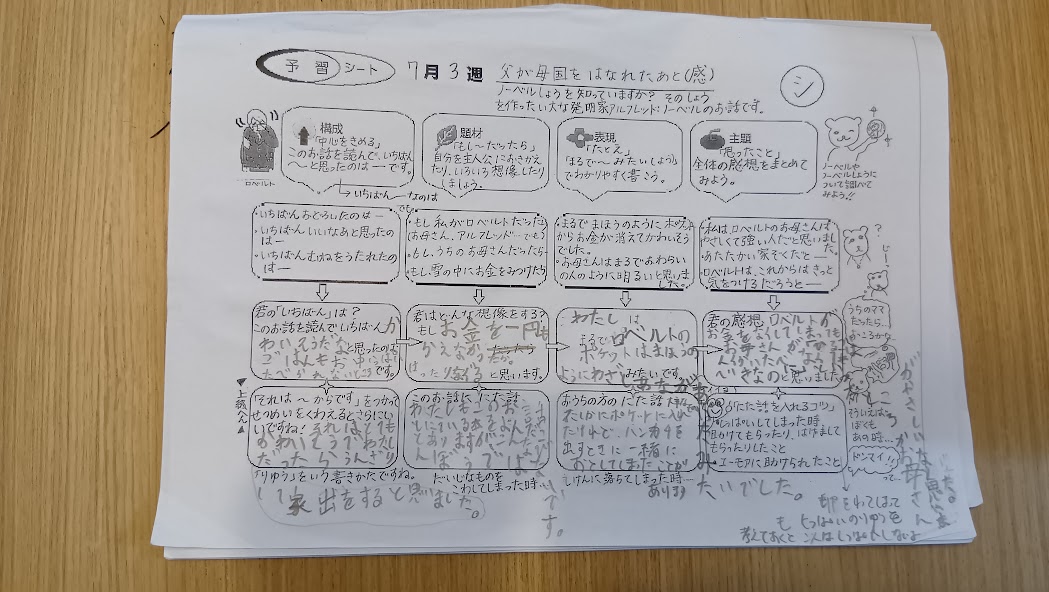 予習シート
7月3週
父が母国をはなれたあと(感)
ノーベルしょうを知っていますか? そのしょう
を作った偉大な発明家アルフレッド・ノーベルのお話です。
シ
ロベルト
構成
「中心をきめる」
このお話を読んで、いちばん
〜と思ったのはーです。
いちばんーなのは
でも。
題材
「もし〜だったら」
自分を主人公におきかえ
たり、いろいろ想像したり
しましょう。
表現
「たとえ」
「まるで〜みたいしょう」
でわかりやすく書こう。
主題
「思ったこと」
全体の感想をまとめて
みよう。
ノーベルや
ノーベルしょうに
ついて調べて
みよう!!
・いちばんおどろいたのはー
・いちばんいいなあと思ったの
はー
・いちばんむねをうたれたの
はー
・もし私がロベルトだったら
(お母さん、アルフレッドーでも)
・もし、うちのお母さんだったら
・もし雪の中にお金をみつけたら
・まるでまほうのようにポケット
からお金が消えてかわいそう
でした。
・お母さんはまるであわらい
の人のように明るいと思いま
した。
・私は、ロベルトのお母さんは
やさしくて強い人だと思いました。
・あたたかい家ぞくだとー
・ロベルトは、これからはきっと
気をつけるだろうとー
?
じー
君の「いちばん」は?
このお話を読んでいちばんか
わいそうだなと思ったのは
ごはんも
たべられないところです。
君はどんな想像をする?
もしお金を一円も
つかえなかったら。
はったり
と思います。
わたしは
まるでロベルトの
ポケットはまほうの
ようにわざと
みたいです。
君の感想 ロベルトが
お金をなくしてしまっても
お母さんが
と思いました。
うちのママ
だったら…
おこるかな
▲上級へん▲
「それは〜からです」をつかって
せつめいをくわえるとさらにい
いですね! それはとても
かわいそうでわたし
だったからうんざり
「りゆう」をいう書きかたですね。
して家出をすると思いました。
このお話ににた話
わたしもこのお
だいじなものを
こわしてしまった時…
です。
おうちの方のにた話
たしかにポケットに入れ
たけれど、ハンカチを
出すときに一緒に
おとしてしまったことが
あります
しけんに落ちてしまった時…
みたいでした。
「にた話を入れるコツ」
・しっぱいしてしまった時、
助けてもらったり、はげまして
もらったりしたこと
・ユーモアに助けられたこと
そういえば
ぼくも
あの時…
ドンマイ!!
って…
卵をわってはって
も しっぱいのりゆうを
考えておくと こんどはしっぱいしないよ